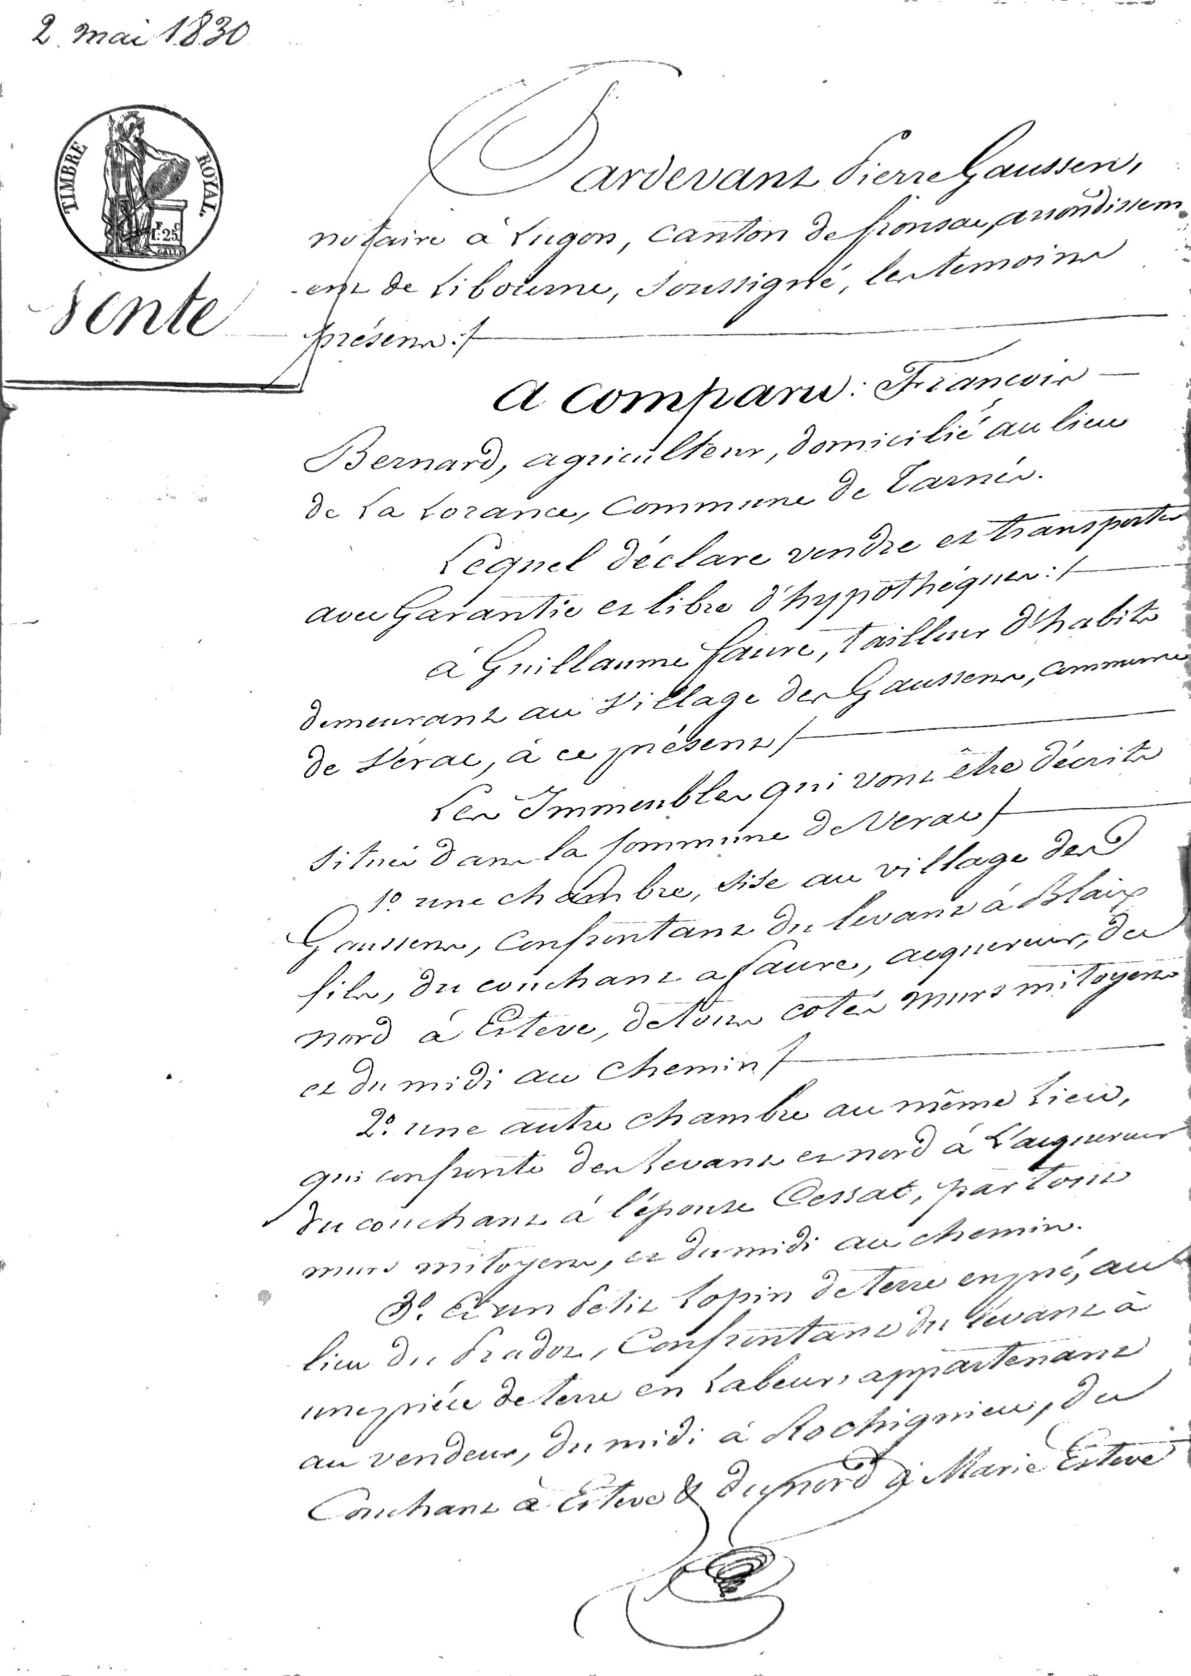 2. mai 1830
TIMBRE ROYAL.
F. C.
1. 25.
Vente
Pardevant Pierre Gaussen,
notaire à Lugon, canton de fronsac, arrondissem
-ent de Libourne, soussigné, les temoins
présens:/
A comparu: François
Bernard, agriculteur, domicilié au lieu
de La Lorance, Commune de Tarnés.
Lequel déclare vendre et transporter
avec Garantie et libre d'hypothéques:/
à Guillaume faure, tailleur d'habits
demeurant au Village des Gaussens, commune
de Vérac, à ce présent/
Les Immeubles qui vont être décrits
situés dans la Commune de Verac/
1º. une chambre, sise au village des
Gaussens, confrontant du levant à Blaix
fils, du couchant a faure, acquereur, du
nord à Esteve, de tous cotés murs mitoyens
et du midi au chemin/
2º. une autre chambre au même Lieu,
qui confronte des Levant et nord à L'acquereur
du couchant à l'épouse Cessat, par tous
murs mitoyens, et du midi au chemin.
3º. Et un Petit Lopin de terre en pré, au
lieu du Pradot, Confrontant du levant à
une piéce de terre en Labeur, appartenant
au vendeur, du midi à Rochignieu, du
Couchant à Esteve & du nord à Marie Esteve